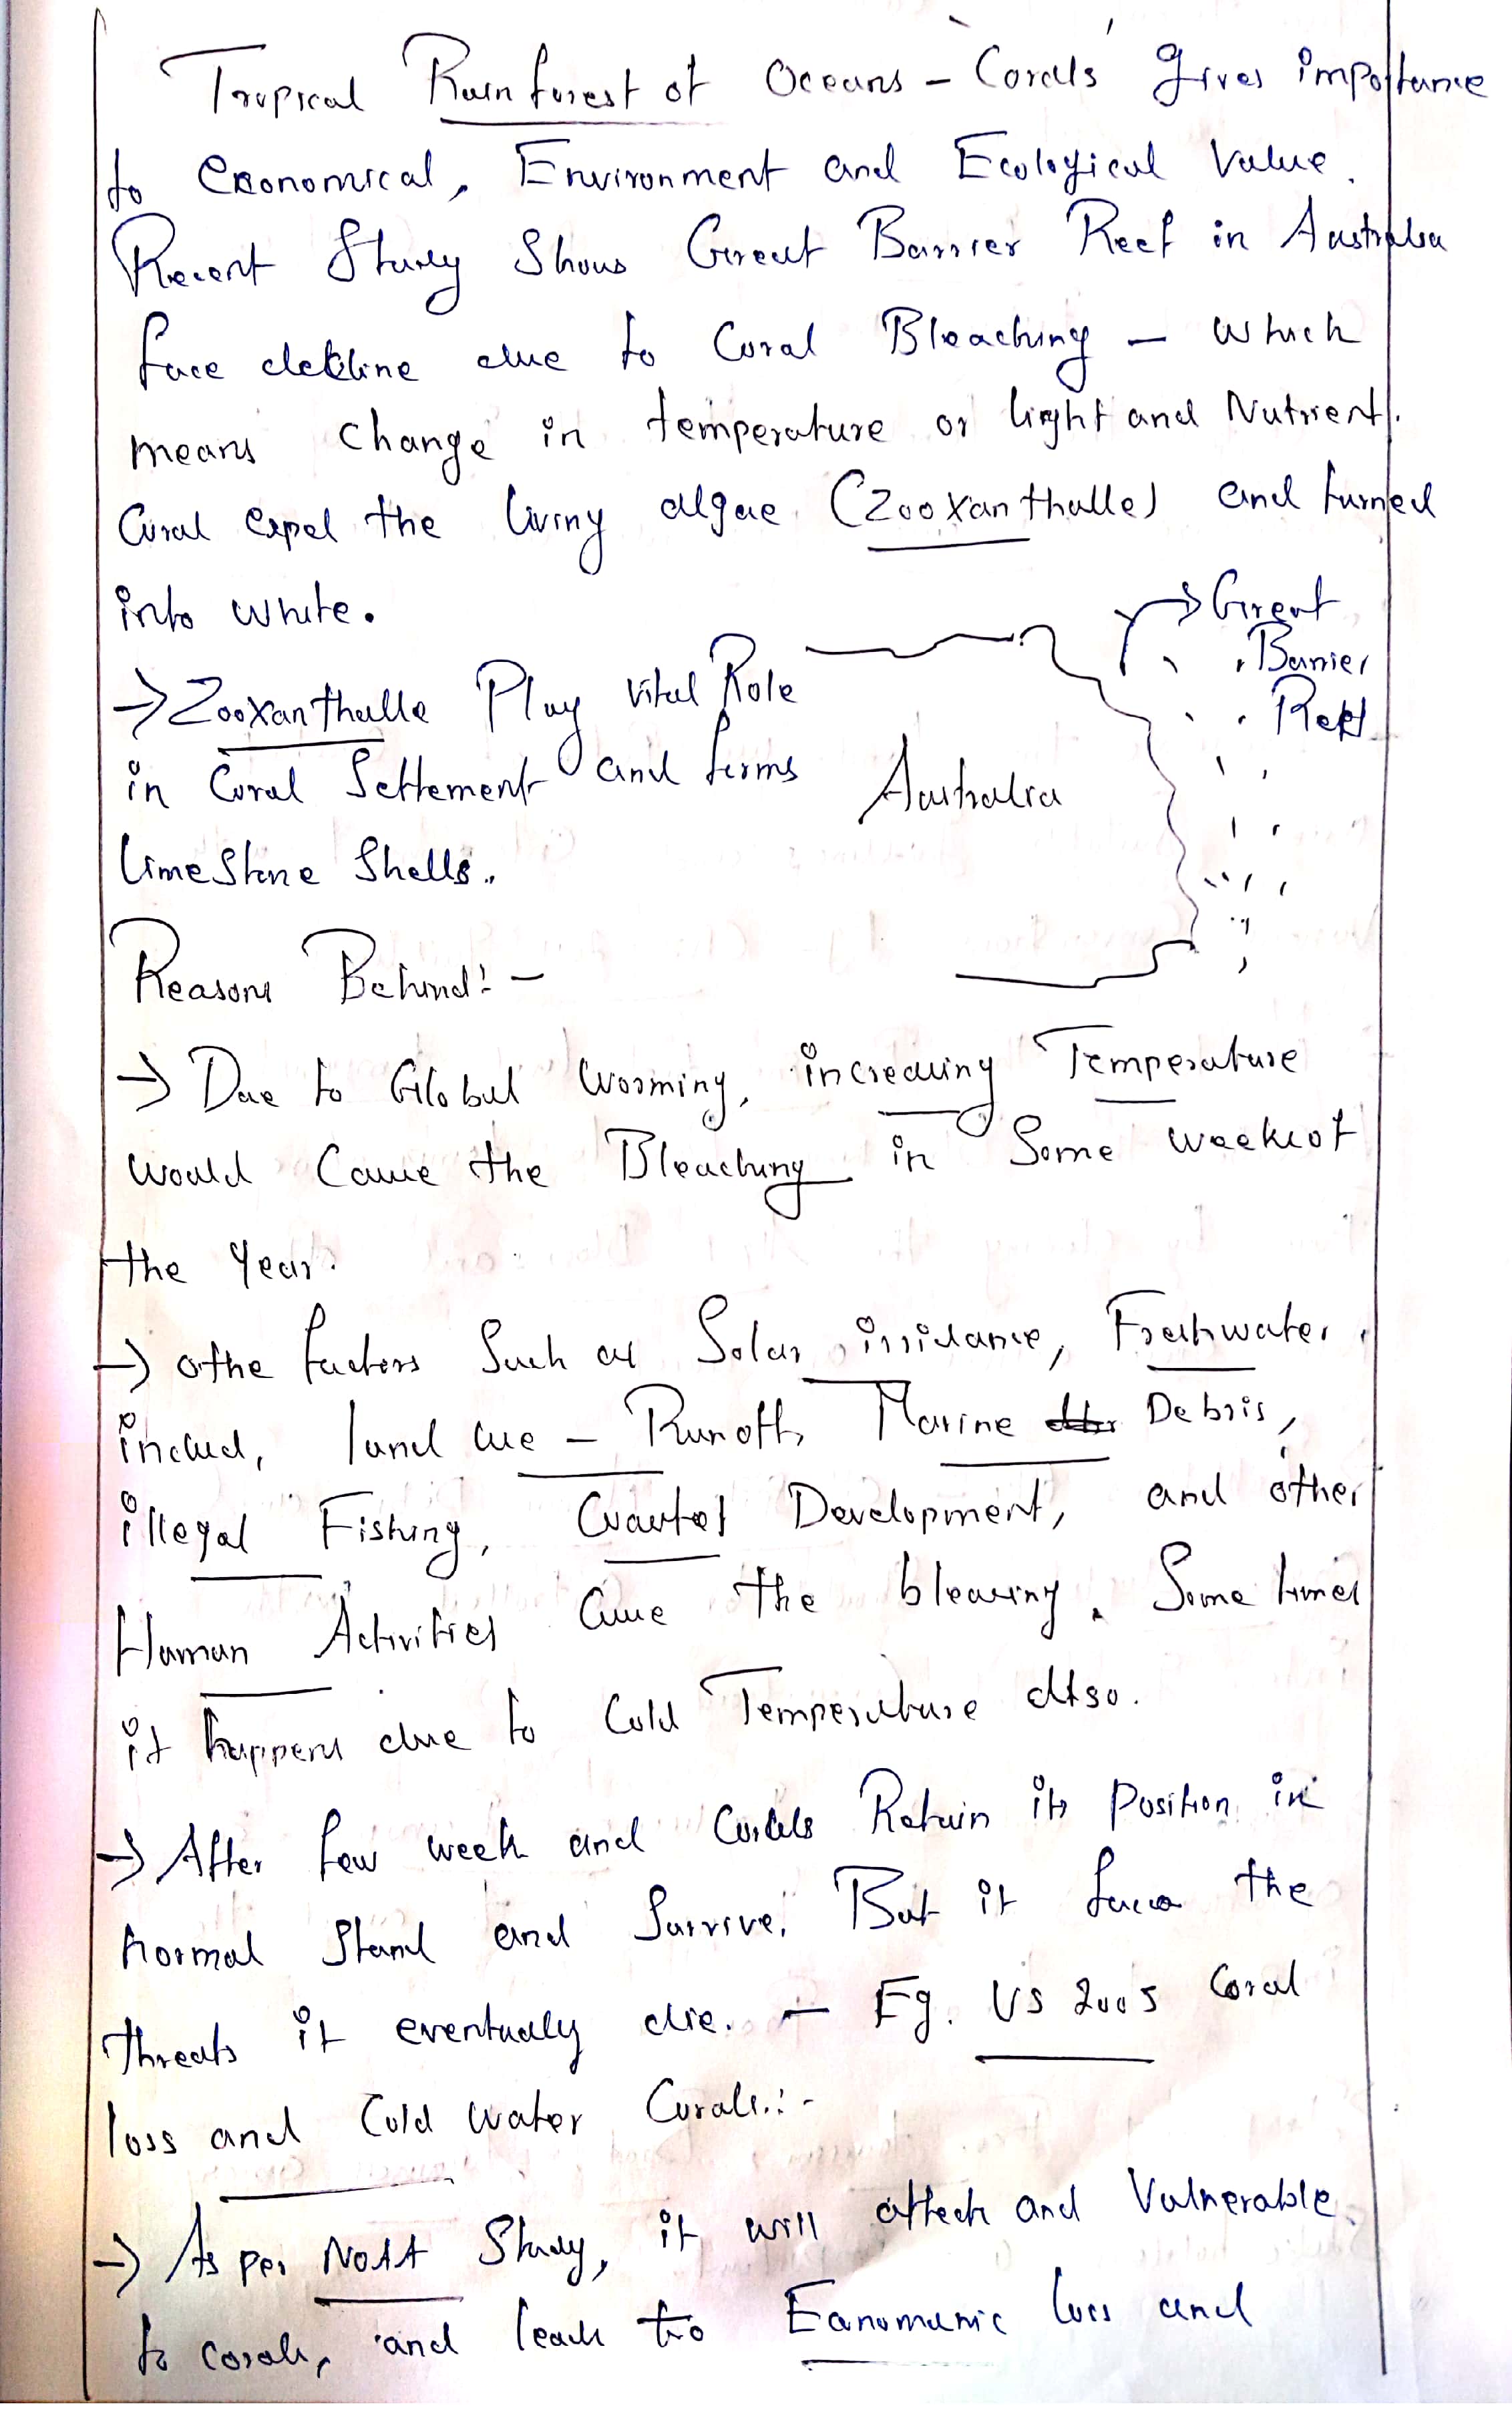 Tropical Rainforest of Oceans - 'Corals' gives importance
to economical, Environment and Ecological Value.
Recent Study Shows Great Barrier Reef in Australia
face decline due to Coral Bleaching - which
means change in temperature or light and Nutrient.
Coral expel the living algae (Zooxanthalle) and turned
into white.
→ Great
Barrier
Reef
→ Zooxanthalle Play vital Role
in Coral Settlement and forms
Australia
limestone Shells.
Reasons Behind:-
→ Due to Global Worming, increasing Temperature
would Cause the Bleaching in Some week of
the year.
→ othe factors Such as Solar irridance, Freshwater
includ, land use - Runoff, Marine Debris,
illegal Fishing, Coastal Development, and other
Human Activities Cause the bleaving. Some times
it happens due to Cold Temperature also.
→ After few week and Corals Retain its position in
normal Stand and Survive. But it faces the
threats it eventually die. - Eg. US 2005 Coral
loss and Cold water Corals.:-
→ As per NOAA Study, it will affect and Vulnerable
to corals, and leads to loss and